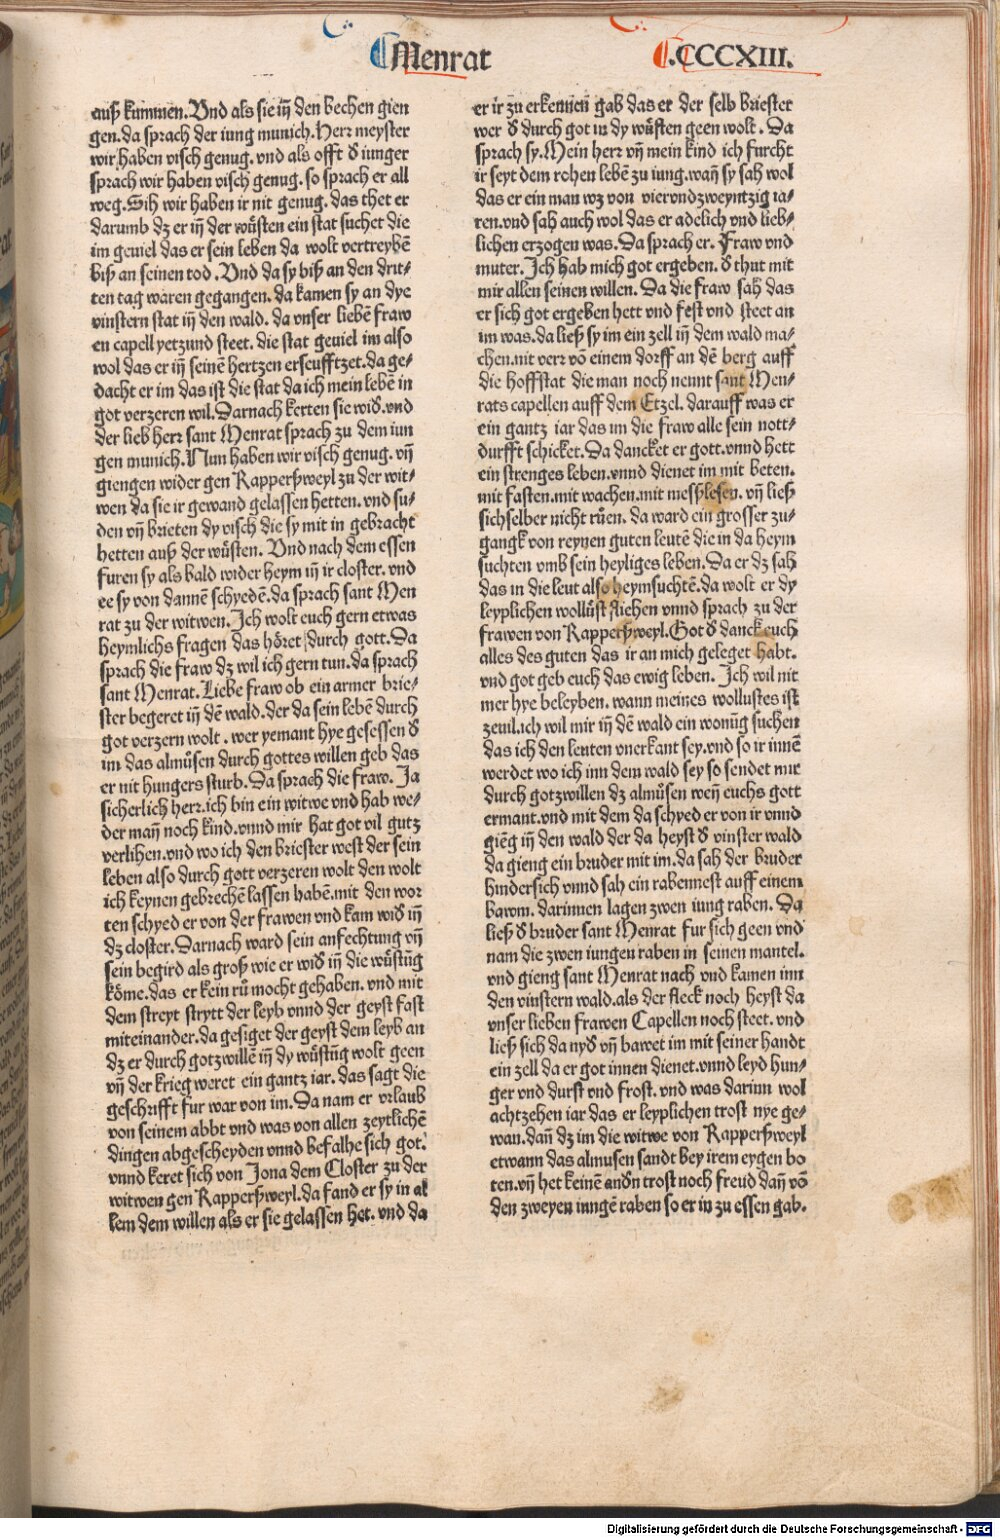 Menrat
.CCCXIII.
auß kummen. Vnd als sie iñ den bechen gien
gen. da sprach der iung munich. Herr meyster
wir haben visch genug. vnd als offt d̕ iunger
sprach wir haben visch genug. so sprach er all
weg. Sih wir haben ir nit genug. das thet er
darumb dz er iñ der wůsten ein stat suchet die
im geuiel das er sein leben da wolt vertreybē
biß an seinen tod. Vnd da sy biß an den drit⸗
ten tag waren gegangen. da kamen sy an dye
vinstern stat iñ den wald. da vnser liebē fraw
en capell yetzund steet. die stat geuiel im also
wol das er iñ seinē hertzen erseufftzet. da ge⸗
dacht er im das ist die stat da ich mein lebē in
got verzeren wil. Darnach kerten sie wid̕. vnd
der lieb herr sant Menrat sprach zu dem iun
gen munich. Nun haben wir visch genug. vñ
giengen wider gen Rapperßweyl zu der wit⸗
wen da sie ir gewand gelassen hetten. vnd su⸗
den vñ brieten dy visch die sy mit in gebracht
hetten auß der wůsten. Vnd nach dem essen
furen sy als bald wider heym iñ ir closter. vnd
ee sy von dannē schyedē. da sprach sant Men
rat zu der witwen. Ich wolt euch gern etwas
heymlichs fragen das höret durch gott. Da
sprach die fraw dz wil ich gern tun. da sprach
sant Menrat. Liebe fraw ob ein armer brie⸗
ster begeret iñ dē wald. der da sein lebē durch
got verzern wolt. wer yemant hye gesessen d̕
im das almůsen durch gottes willen geb das
er nit hungers sturb. Da sprach die fraw. Ja
sicherlich herr. ich bin ein witwe vnd hab we⸗
der mañ noch kind. vnnd mir hat got vil gutz
verlihen. vnd wo ich den briester west der sein
leben also durch gott verzeren wolt den wolt
ich keynen gebrechē lassen habē. mit den wor
ten schyed er von der frawen vnd kam wid̕ iñ
dz closter. Darnach ward sein anfechtung vñ
sein begird als groß wie er wid̕ iñ die wůstūg
kōme. das er kein rů mocht gehaben. vnd mit
dem streyt strytt der leyb vnnd der geyst fast
miteinander. da gesiget der geyst dem leyb an
dz er durch gotzwillē iñ dy wůstūg wolt geen
vñ der krieg weret ein gantz iar. das sagt die
geschrifft fur war von im. Da nam er vrlaub
von seinem abbt vnd was von allen zeytlichē
dingen abgescheyden vnnd befalhe sich got.
vnnd keret sich von Jona dem Closter zu der
witwen gen Rapperßweyl. da fand er sy in al
lem dem willen als er sie gelassen het. vnd da
er ir zu erkennen gab das er der selb briester
wer d̕ durch got in dy wůsten geen wolt. Da
sprach sy. Mein herr vñ mein kind ich furcht
ir seyt dem rohen lebē zu iung. wañ sy sah wol
das er ein man wz von viervndzweyntzig ia⸗
ren. vnd sah auch wol das er adelich vnd lieb⸗
lichen erzogen was. Da sprach er. Fraw vnd
muter. Ich hab mich got ergeben. d̕ thut mit
mir allen seinen willen. Da die fraw sah das
er sich got ergeben hett vnd fest vnd steet an
im was. da ließ sy im ein zell iñ dem wald ma⸗
chen. nit verr vō einem dorff an dē berg auff
die hoffstat die man noch nennt sant Men⸗
rats capellen auff dem Etzel. darauff was er
ein gantz iar das im die fraw alle sein nott⸗
durfft schicket. Da dancket er gott. vnnd hett
ein strenges leben. vnnd dienet im mit beten.
mit fasten. mit wachen. mit meßlesen. vñ ließ
sichselber nicht růen. da ward ein grosser zu⸗
gangk von reynen guten leutē die in da heym
suchten vmb sein heyliges leben. Da er dz sah
das in die leut also heymsuchtē. da wolt er dy
leyplichen wollůst fliehen vnnd sprach zu der
frawen von Rapperßweyl. Got d̕ danck euch
alles des guten das ir an mich geleget habt.
vnd got geb euch das ewig leben. Ich wil nit
mer hye beleyben. wann meines wollustes ist
zeuil. ich wil mir iñ dē wald ein wonūg suchen
das ich den leuten vnerkant sey. vnd so ir innē
werdet wo ich inn dem wald sey so sendet mir
durch gotzwillen dz almůsen weñ euchs gott
ermant. vnd mit dem da schyed er von ir vnnd
giēg iñ den wald der da heyst d̕ vinster wald
da gieng ein bruder mit im. da sah der bruder
hindersich vnnd sah ein rabennest auff einem
bawm. darinnen lagen zwen iung raben. Da
ließ d̕ bruder sant Menrat fur sich geen vnd
nam die zwen iungen raben in seinen mantel.
vnd gieng sant Menrat nach vnd kamen inn
den vinstern wald. als der fleck noch heyst da
vnser lieben frawen Capellen noch steet. vnd
ließ sich da nyd̕ vñ bawet im mit seiner handt
ein zell da er got innen dienet. vnnd leyd hun⸗
ger vnd durst vnd frost. vnd was darinn wol
achtzehen iar das er leyplichen trost nye ge⸗
wan. dañ dz im die witwe von Rapperßweyl
etwann das almusen sandt bey irem eygen bo
ten. vñ het keinē and̕n trost noch freud dañ vō
den zweyen iungē raben so er in zu essen gab.
Digitalisierung gefördert durch die Deutsche Forschungsgemeinschaft - DFG